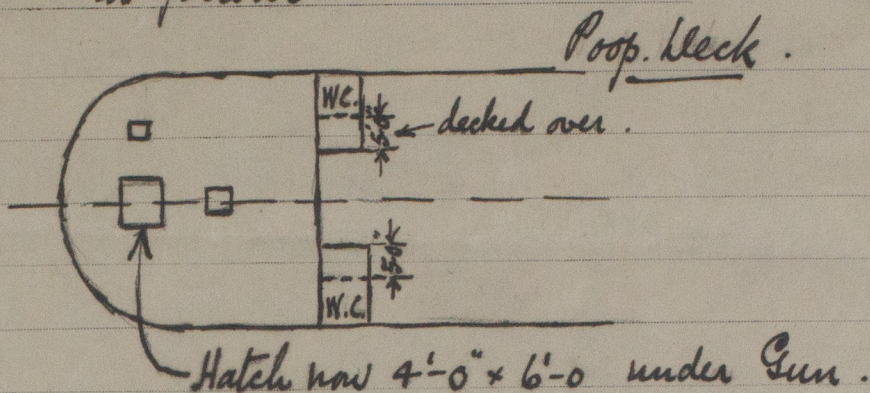 Poop. Deck.
W.C.
5'0"
decked over.
5'0"
W.C.
Hatch now 4'-0" × 6'-0 under Gun.